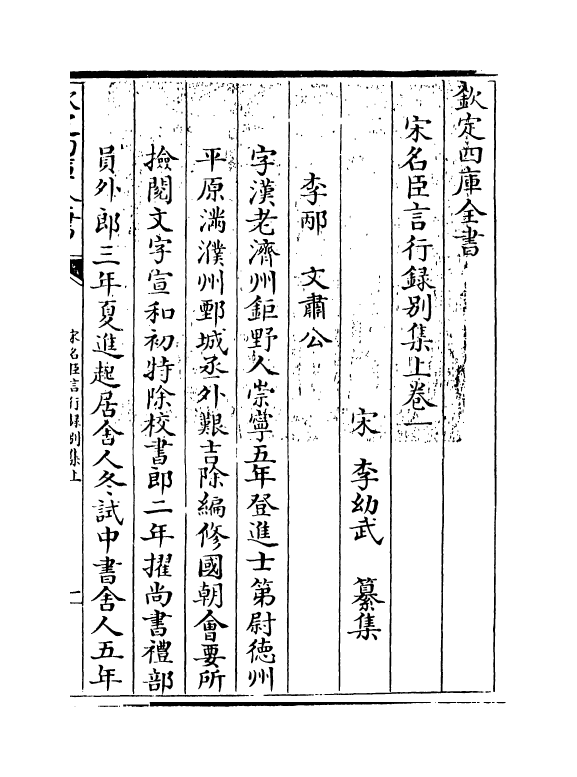 欽定四庫全書
宋名臣言行録別集上卷一
宋 李幼武 纂集
李邴 文肅公
字漢老濟州鉅野人崇寧五年登進士第尉徳州
平原滿濮州鄄城丞外艱吉除編修國朝會要所
撿閲文字宣和初特除校書郎二年擢尚書禮部
員外郎三年夏進起居舎人冬試中書舎人五年
宋名臣言行録別集上
一